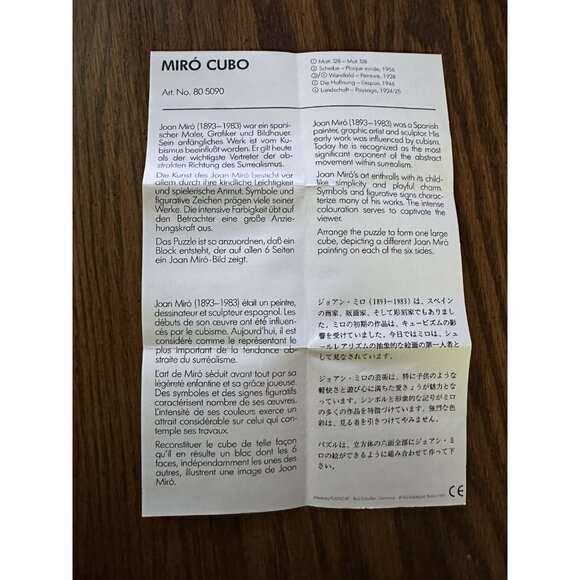 MIRÓ CUBO
Art. No. 80 5090
① Matt 128 – Mat 128
② Scheibe – Plaque ronde, 1956
③/④ Wandbild – Peinture, 1928
⑤ Die Hoffnung – L'espoir, 1946
⑥ Landschaft – Paysage, 1924/25
Joan Miró (1893–1983) war ein spani-
scher Maler, Grafiker und Bildhauer.
Sein anfängliches Werk ist vom Ku-
bismus beeinflußt worden. Er gilt heute
als der wichtigste Vertreter der ab-
strakten Richtung des Surrealismus.
Die Kunst des Joan Miró besticht vor
allem durch ihre kindliche Leichtigkeit
und spielerische Anmut. Symbole und
figurative Zeichen prägen viele seiner
Werke. Die intensive Farbigkeit übt auf
den Betrachter eine große Anzie-
hungskraft aus.
Das Puzzle ist so anzuordnen, daß ein
Block entsteht, der auf allen 6 Seiten
ein Joan Miró-Bild zeigt.
Joan Miró (1893–1983) was a Spanish
painter, graphic artist and sculptor. His
early work was influenced by cubism.
Today he is recognized as the most
significant exponent of the abstract
movement within surrealism.
Joan Miró's art enthralls with its child-
like simplicity and playful charm.
Symbols and figurative signs charac-
terize many of his works. The intense
colouration serves to captivate the
viewer.
Arrange the puzzle to form one large
cube, depicting a different Joan Miró
painting on each of the six sides.
Joan Miró (1893–1983) était un peintre,
dessinateur et sculpteur espagnol. Les
débuts de son œuvre ont été influen-
cés par le cubisme. Aujourd'hui, il est
considéré comme le représentant le
plus important de la tendance abs-
traite du surréalisme.
L'art de Miró séduit avant tout par sa
légèreté enfantine et sa grâce joueuse.
Des symboles et des signes figuratifs
caractérisent nombre de ses œuvres.
L'intensité de ses couleurs exerce un
attrait considérable sur celui qui con-
temple ses travaux.
Reconstituer le cube de telle façon
qu'il en résulte un bloc dont les 6
faces, indépendamment les unes des
autres, illustrent une image de Joan
Miró.
ジョアン・ミロ (1893–1983) は、スペイン
の画家、版画家、そして彫刻家でもありまし
た。ミロの初期の作品は、キュービズムの影
響を受けていました。今日ではミロは、シュ
ールレアリズムの抽象的な絵画の第一人者と
して見なされています。
ジョアン・ミロの芸術は、特に子供のような
軽快さと遊び心に満ちた愛きょうが魅力とな
っています。シンボルと形象的な記号がミロ
の多くの作品を特徴づけています。強烈な色
彩は、見る者を引きつけてやみません。
パズルは、立方体の六面全部にジョアン・ミ
ロの絵ができるように組み合わせて作って下
さい。
Made by NATERCAT
CE